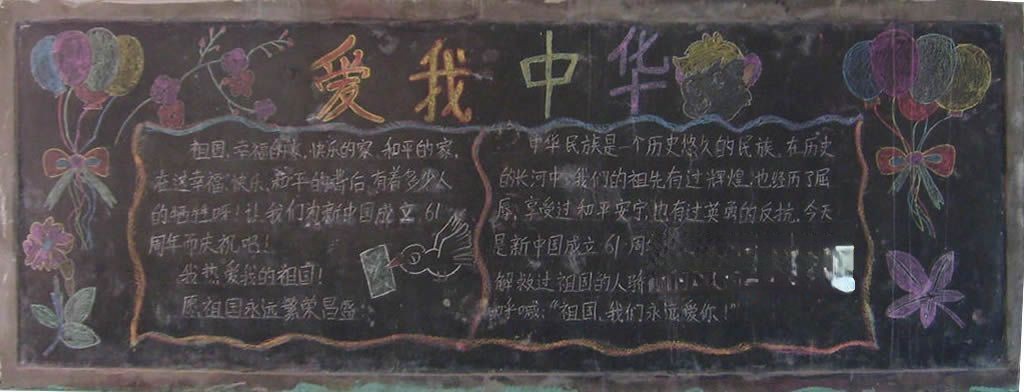 爱我中华
祖国,幸福的家,快乐的家,和平的家,
在这幸福、快乐、和平的背后,有着多少人
的牺牲呀!让我们为新中国成立61
周年而庆祝吧!
我热爱我的祖国!
愿祖国永远繁荣昌盛
中华民族是一个历史悠久的民族,在历史
的长河中,我们的祖先有过辉煌,也经历了屈
辱,享受过和平安宁,也有过英勇的反抗。今天
是新中国成立61周
解救过祖国的人骄
呼喊:"祖国,我们永远爱你!"